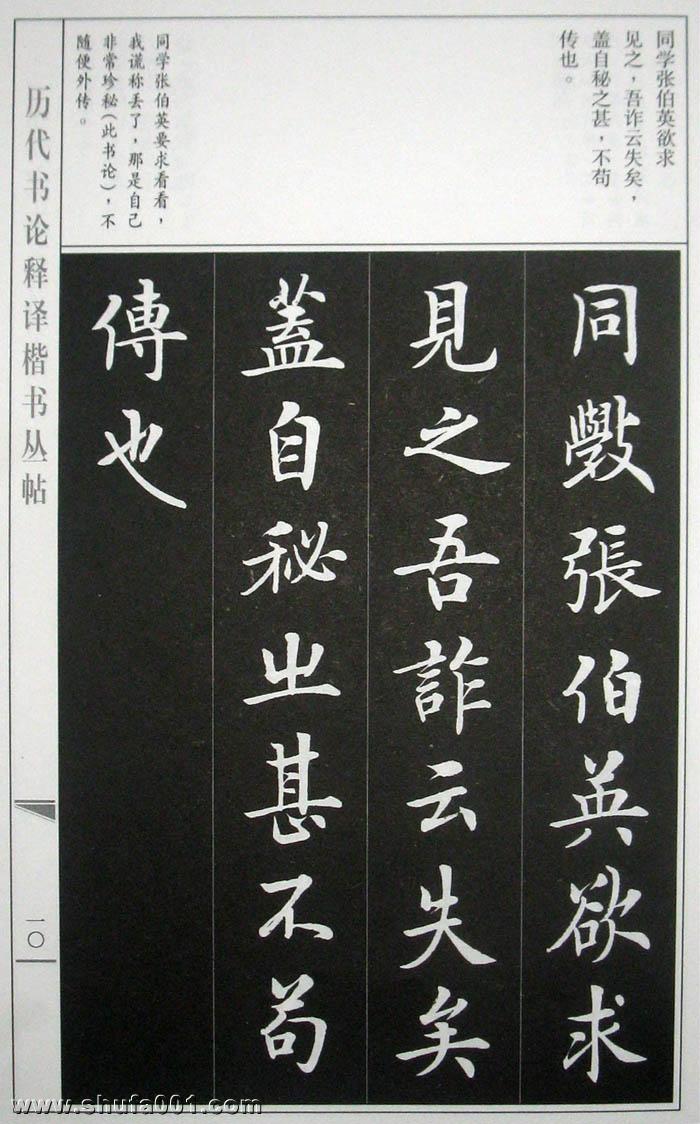 同学张伯英欲求
见之，吾诈云失矣，
盖自秘之甚，不苟
传也。
同学张伯英要求看看，
我谎称丢了，那是自己
非常珍秘（此书论），不
随便外传。
同斆張伯英欲求
見之吾詐云失矣
蓋自秘㞢甚不苟
傳也
历代书论释译楷书丛帖
一〇
www.shufa001.com